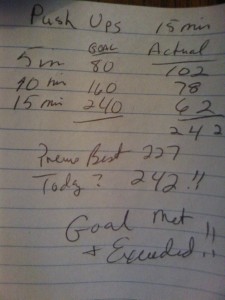 Push Ups 15 min
Goal Actual
5 min 80 102
10 min 160 78
15 min 240 62
242
Previous Best 227
Today? 242!!
Goal Met
+ Exceeded!!